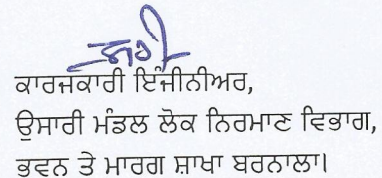 ਸਹੀ
ਕਾਰਜਕਾਰੀ ਇੰਜੀਨੀਅਰ,
ਉਸਾਰੀ ਮੰਡਲ ਲੋਕ ਨਿਰਮਾਣ ਵਿਭਾਗ,
ਭਵਨ ਤੇ ਮਾਰਗ ਸ਼ਾਖਾ ਬਰਨਾਲਾ।